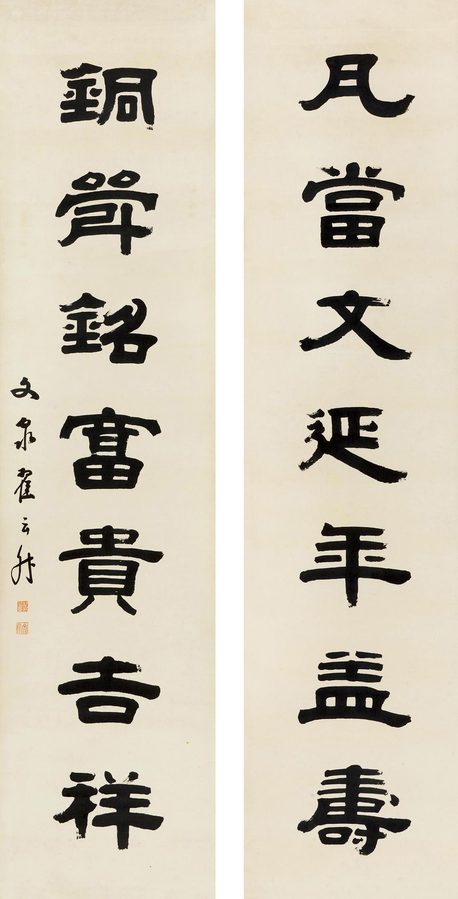 瓦當文延年益壽
銅斝銘富貴吉祥
文泉翟云升